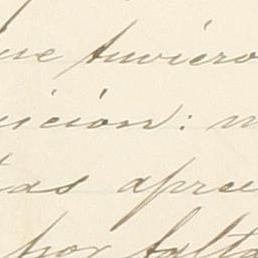 que tuviero
sicion: n
tas apre
por falta